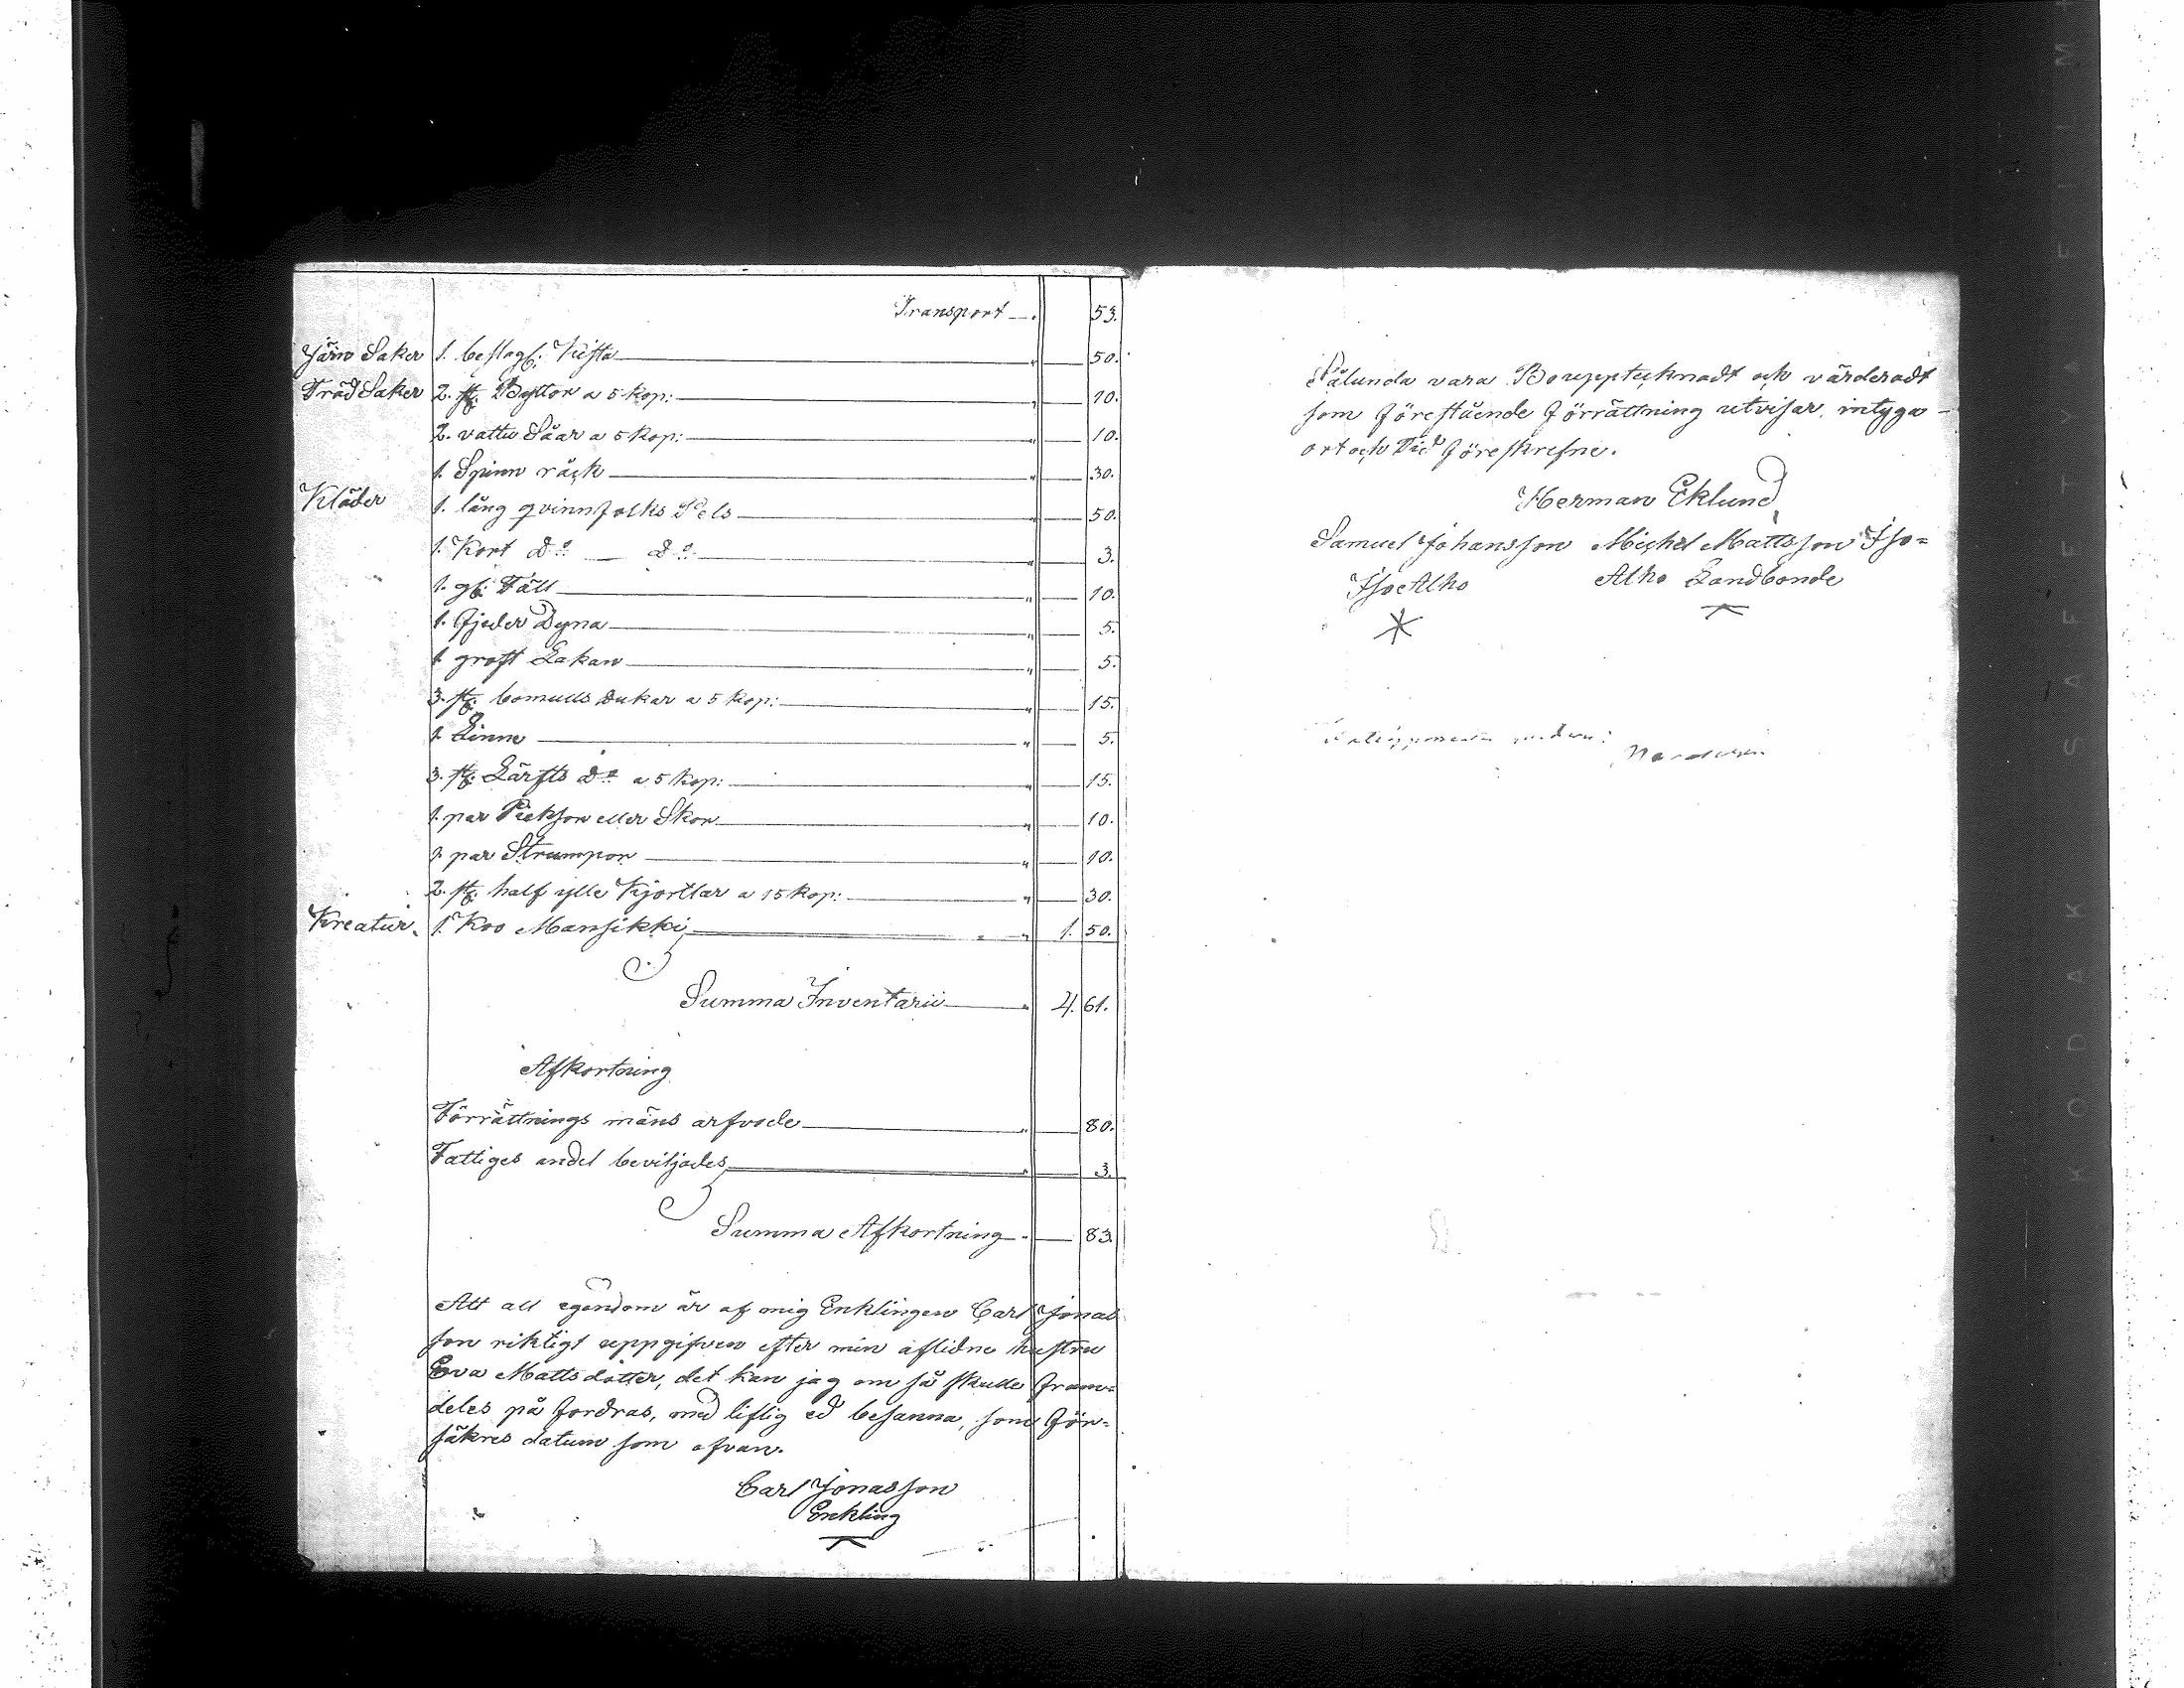 Transport 53.
Järn Saker 1. beslag gl: Kista " 50.
Träd Saker 2. st: Byttor a 5 kop: " 10.
2. vattu Såar a 5 kop: " 10.
1. Spinn råck " 30.
Kläder 1. lång qvinnfolks Pels " 50.
1. Kort Do Do " 3.
1. gl: Fäll " 10.
1. fjeder Dyna " 5.
1 groft Lakan " 5.
3. st: bomulls Dukar a 5 kop: " 15.
1. Linne " 5.
3. st: Lärfts Do a 5 kop: " 15.
1. par Pieksor eller Skor " 10.
1. par Strumpor " 10.
2. st: half ylle Kjortlar a 15 kop: " 30.
Kreatur. 1. Koo Mansikki " 1. 50.
Summa Inventarii " 4. 61.
Afkortning
Förrättnings mäns arfvode " 80.
Fattiges andel beviljades " 3.
Summa Afkortning " 83.
Att all egendom är af mig Enklingen Carl Jonas
son riktigt uppgifven efter min aflidne hustru
Eva Mattsdotter, det kan jag om så skulle fram=
deles på fordras, med liflig ed besanna, som för=
säkres datum som ofvan.
Carl Jonasson
Enkling
Sålunda vara Bouppteknadt och värderadt
som förestående förrättning utvisar, intyga
ort och Tid föreskrefne.
Herman Eklund
Samuel Johansson Michel Mattsson Iso=
Iso Alho Alho Landbonde